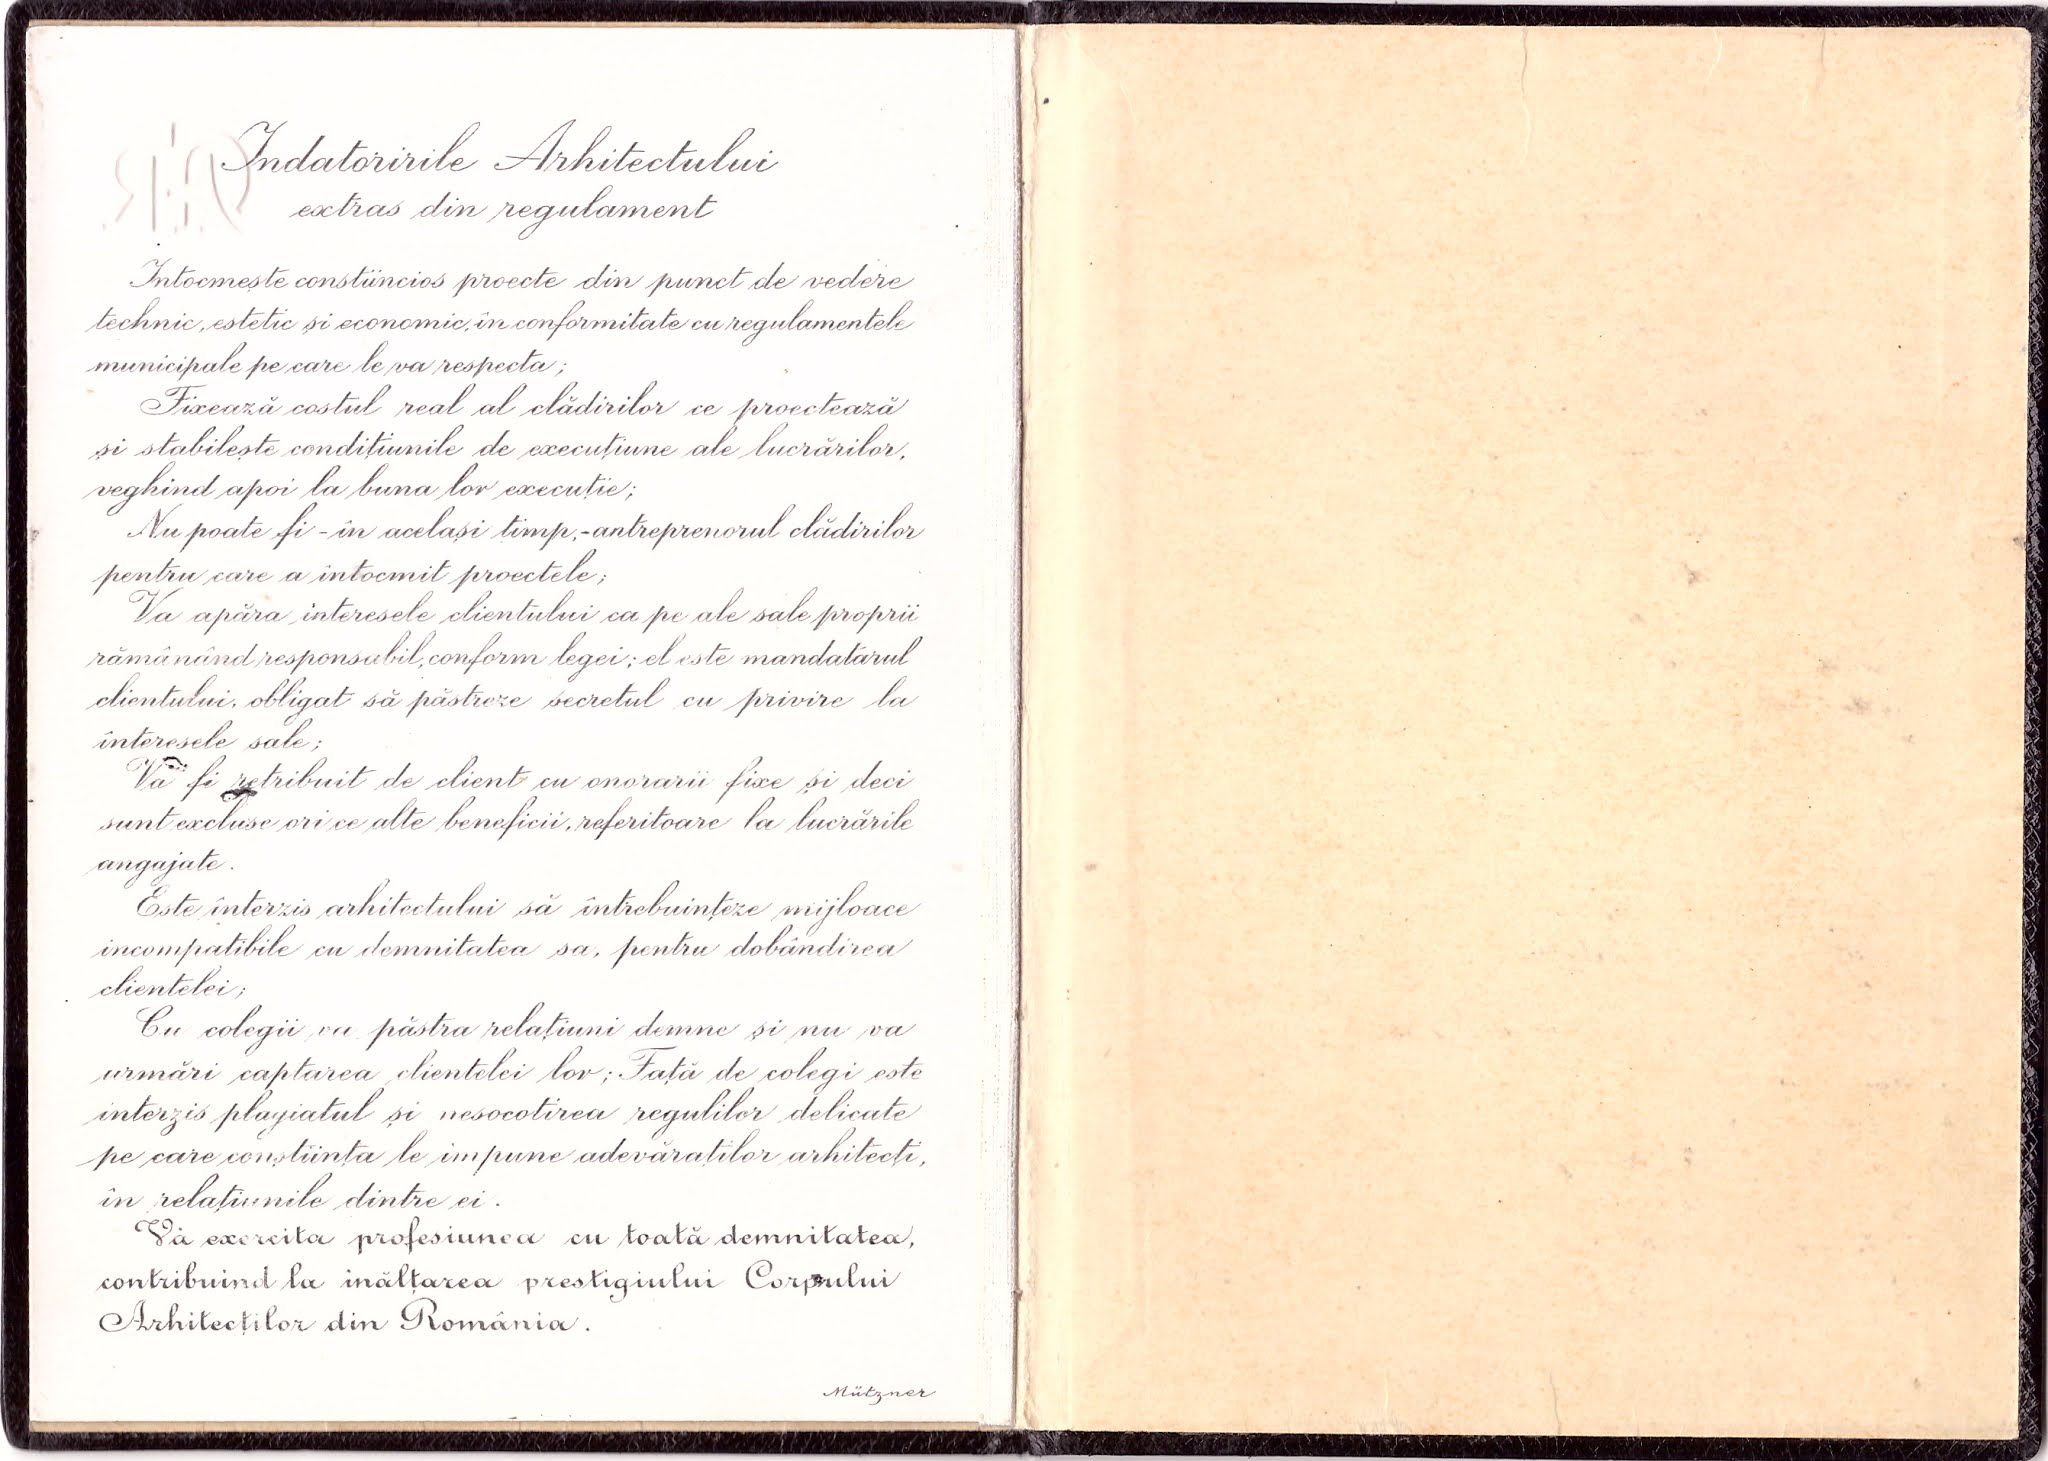 Indatoririle Arhitectului
extras din regulament
Intocmește constiincios proecte din punct de vedere
technic, estetic și economic, în conformitate cu regulamentele
municipale pe care le va respecta;
Fixează costul real al clădirilor ce proectează
și stabilește condițiunile de execuțiune ale lucrărilor,
veghind apoi la buna lor execuție;
Nu poate fi - în același timp, - antreprenorul clădirilor
pentru care a intocmit proectele;
Va apăra interesele clientului ca pe ale sale proprii
rămânând responsabil, conform legei; el este mandatarul
clientului, obligat să păstreze secretul cu privire la
interesele sale;
Va fi retribuit de client cu onorarii fixe și deci
sunt excluse ori ce alte beneficii, referitoare la lucrările
angajate.
Este interzis arhitectului să întrebuințeze mijloace
incompatibile cu demnitatea sa, pentru dobândirea
clientelei;
Cu colegii va păstra relațiuni demne și nu va
urmări captarea clientelei lor; Față de colegi este
interzis plagiatul și nesocotirea regulilor delicate
pe care conștiința le impune adevăraților arhitecți,
în relațiunile dintre ei.
Va exercita profesiunea cu toată demnitatea,
contribuind la inălțarea prestigiului Corpului
Arhitecților din România.
Mützner